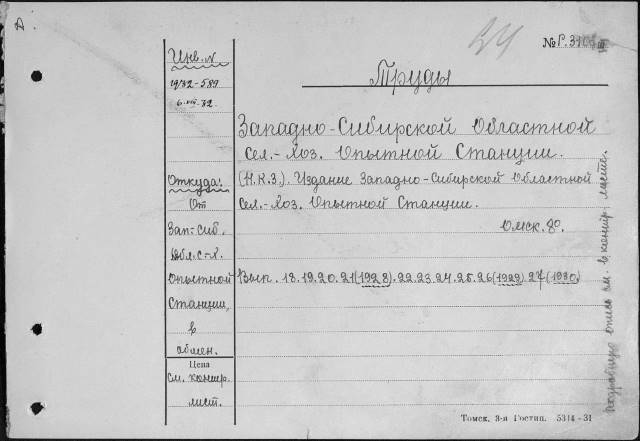 24
№ Р.3105 III
Инв. №
1932-589
6.VIII.32
Труды
Западно-Сибирской Областной
Сел.-Хоз. Опытной Станции.
(Н.К.З.). Издание Западно-Сибирской Областной
Сел.-Хоз. Опытной Станции.
Омск. 8º.
Вып. 18.19.20.21(1928).22.23.24.25.26(1929).27(1930)
Откуда:
От
Зап-Сиб.
Обл.С-Х.
Опытной
Станции,
в
обмен.
Цена
см. контр.
лист.
Подробную опись см. в контр. листе.
Томск. 3-я Гостип. 5314-31